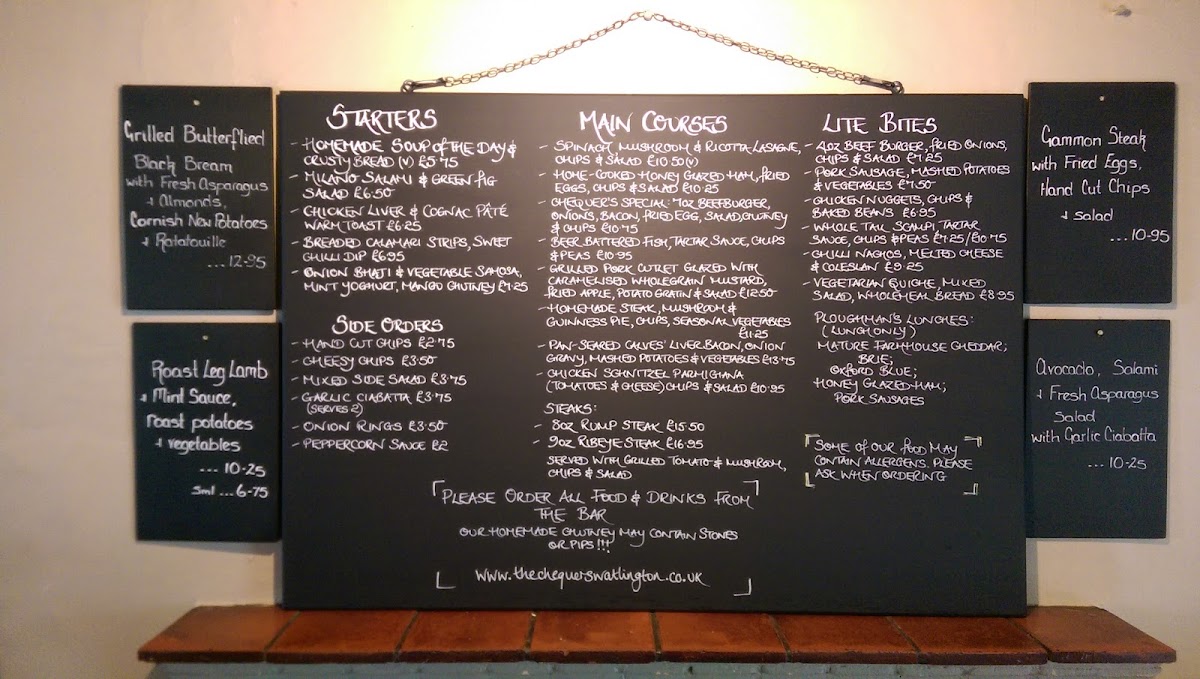 Grilled Butterflied
Black Bream
with Fresh Asparagus
+ Almonds,
Cornish New Potatoes
+ Ratatouille
...12-95
Roast Leg Lamb
+ Mint Sauce,
roast potatoes
+ vegetables
... 10-25
sml ... 6-75
STARTERS
- HOMEMADE SOUP OF THE DAY &
CRUSTY BREAD (V) £5.75
- MILANO SALAMI & GREEN FIG
SALAD £6.50
- CHICKEN LIVER & COGNAC PÂTÉ
WARM TOAST £6.25
- BREADED CALAMARI STRIPS, SWEET
CHILLI DIP £6.95
- ONION BHAJI & VEGETABLE SAMOSA,
MINT YOGHURT, MANGO CHUTNEY £7.25
SIDE ORDERS
- HAND CUT CHIPS £2.75
- CHEESY CHIPS £3.50
- MIXED SIDE SALAD £3.75
- GARLIC CIABATTA £3.75
(SERVES 2)
- ONION RINGS £3.50
- PEPPERCORN SAUCE £2
MAIN COURSES
- SPINACH, MUSHROOM & RICOTTA LASAGNE,
CHIPS & SALAD £10.50 (V)
- HOME-COOKED HONEY GLAZED HAM, FRIED
EGGS, CHIPS & SALAD £10.25
- CHEQUER'S SPECIAL: 7OZ BEEFBURGER,
ONIONS, BACON, FRIED EGG, SALAD, CHUTNEY
& CHIPS £10.75
- BEER BATTERED FISH, TARTAR SAUCE, CHIPS
& PEAS £10.95
- GRILLED PORK CUTLET GLAZED WITH
CARAMELISED WHOLEGRAIN MUSTARD,
FRIED APPLE, POTATO GRATIN & SALAD £12.50
- HOMEMADE STEAK, MUSHROOM &
GUINNESS PIE, CHIPS, SEASONAL VEGETABLES
£11.25
- PAN-SEARED CALVES' LIVER, BACON, ONION
GRAVY, MASHED POTATOES & VEGETABLES £13.75
- CHICKEN SCHNITZEL PARMIGIANA
(TOMATOES & CHEESE) CHIPS & SALAD £10.95
STEAKS:
- 8OZ RUMP STEAK £15.50
- 9OZ RIBEYE STEAK £16.95
SERVED WITH GRILLED TOMATO & MUSHROOM,
CHIPS & SALAD
LITE BITES
- 4OZ BEEF BURGER, FRIED ONIONS,
CHIPS & SALAD £7.25
- PORK SAUSAGE, MASHED POTATOES
& VEGETABLES £7.50
- CHICKEN NUGGETS, CHIPS &
BAKED BEANS £6.95
- WHOLE TAIL SCAMPI, TARTAR
SAUCE, CHIPS & PEAS £7.25/£10.75
- CHILLI NACHOS, MELTED CHEESE
& COLESLAW £9.25
- VEGETARIAN QUICHE, MIXED
SALAD, WHOLEMEAL BREAD £8.95
PLOUGHMAN'S LUNCHES:
(LUNCH ONLY)
MATURE FARMHOUSE CHEDDAR;
BRIE;
OXFORD BLUE;
HONEY GLAZED HAM;
PORK SAUSAGES
SOME OF OUR FOOD MAY
CONTAIN ALLERGENS. PLEASE
ASK WHEN ORDERING
PLEASE ORDER ALL FOOD & DRINKS FROM
THE BAR
OUR HOMEMADE CHUTNEY MAY CONTAIN STONES
OR PIPS!!!
www.thechequerswatlington.co.uk
Gammon Steak
with Fried Eggs,
Hand Cut Chips
+ salad
...10-95
Avocado, Salami
+ Fresh Asparagus
Salad
with Garlic Ciabatta
... 10-25